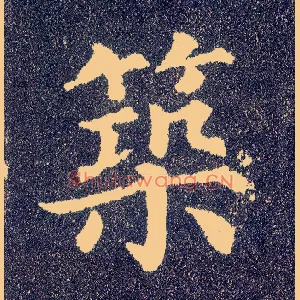 築
Shufawang.CN